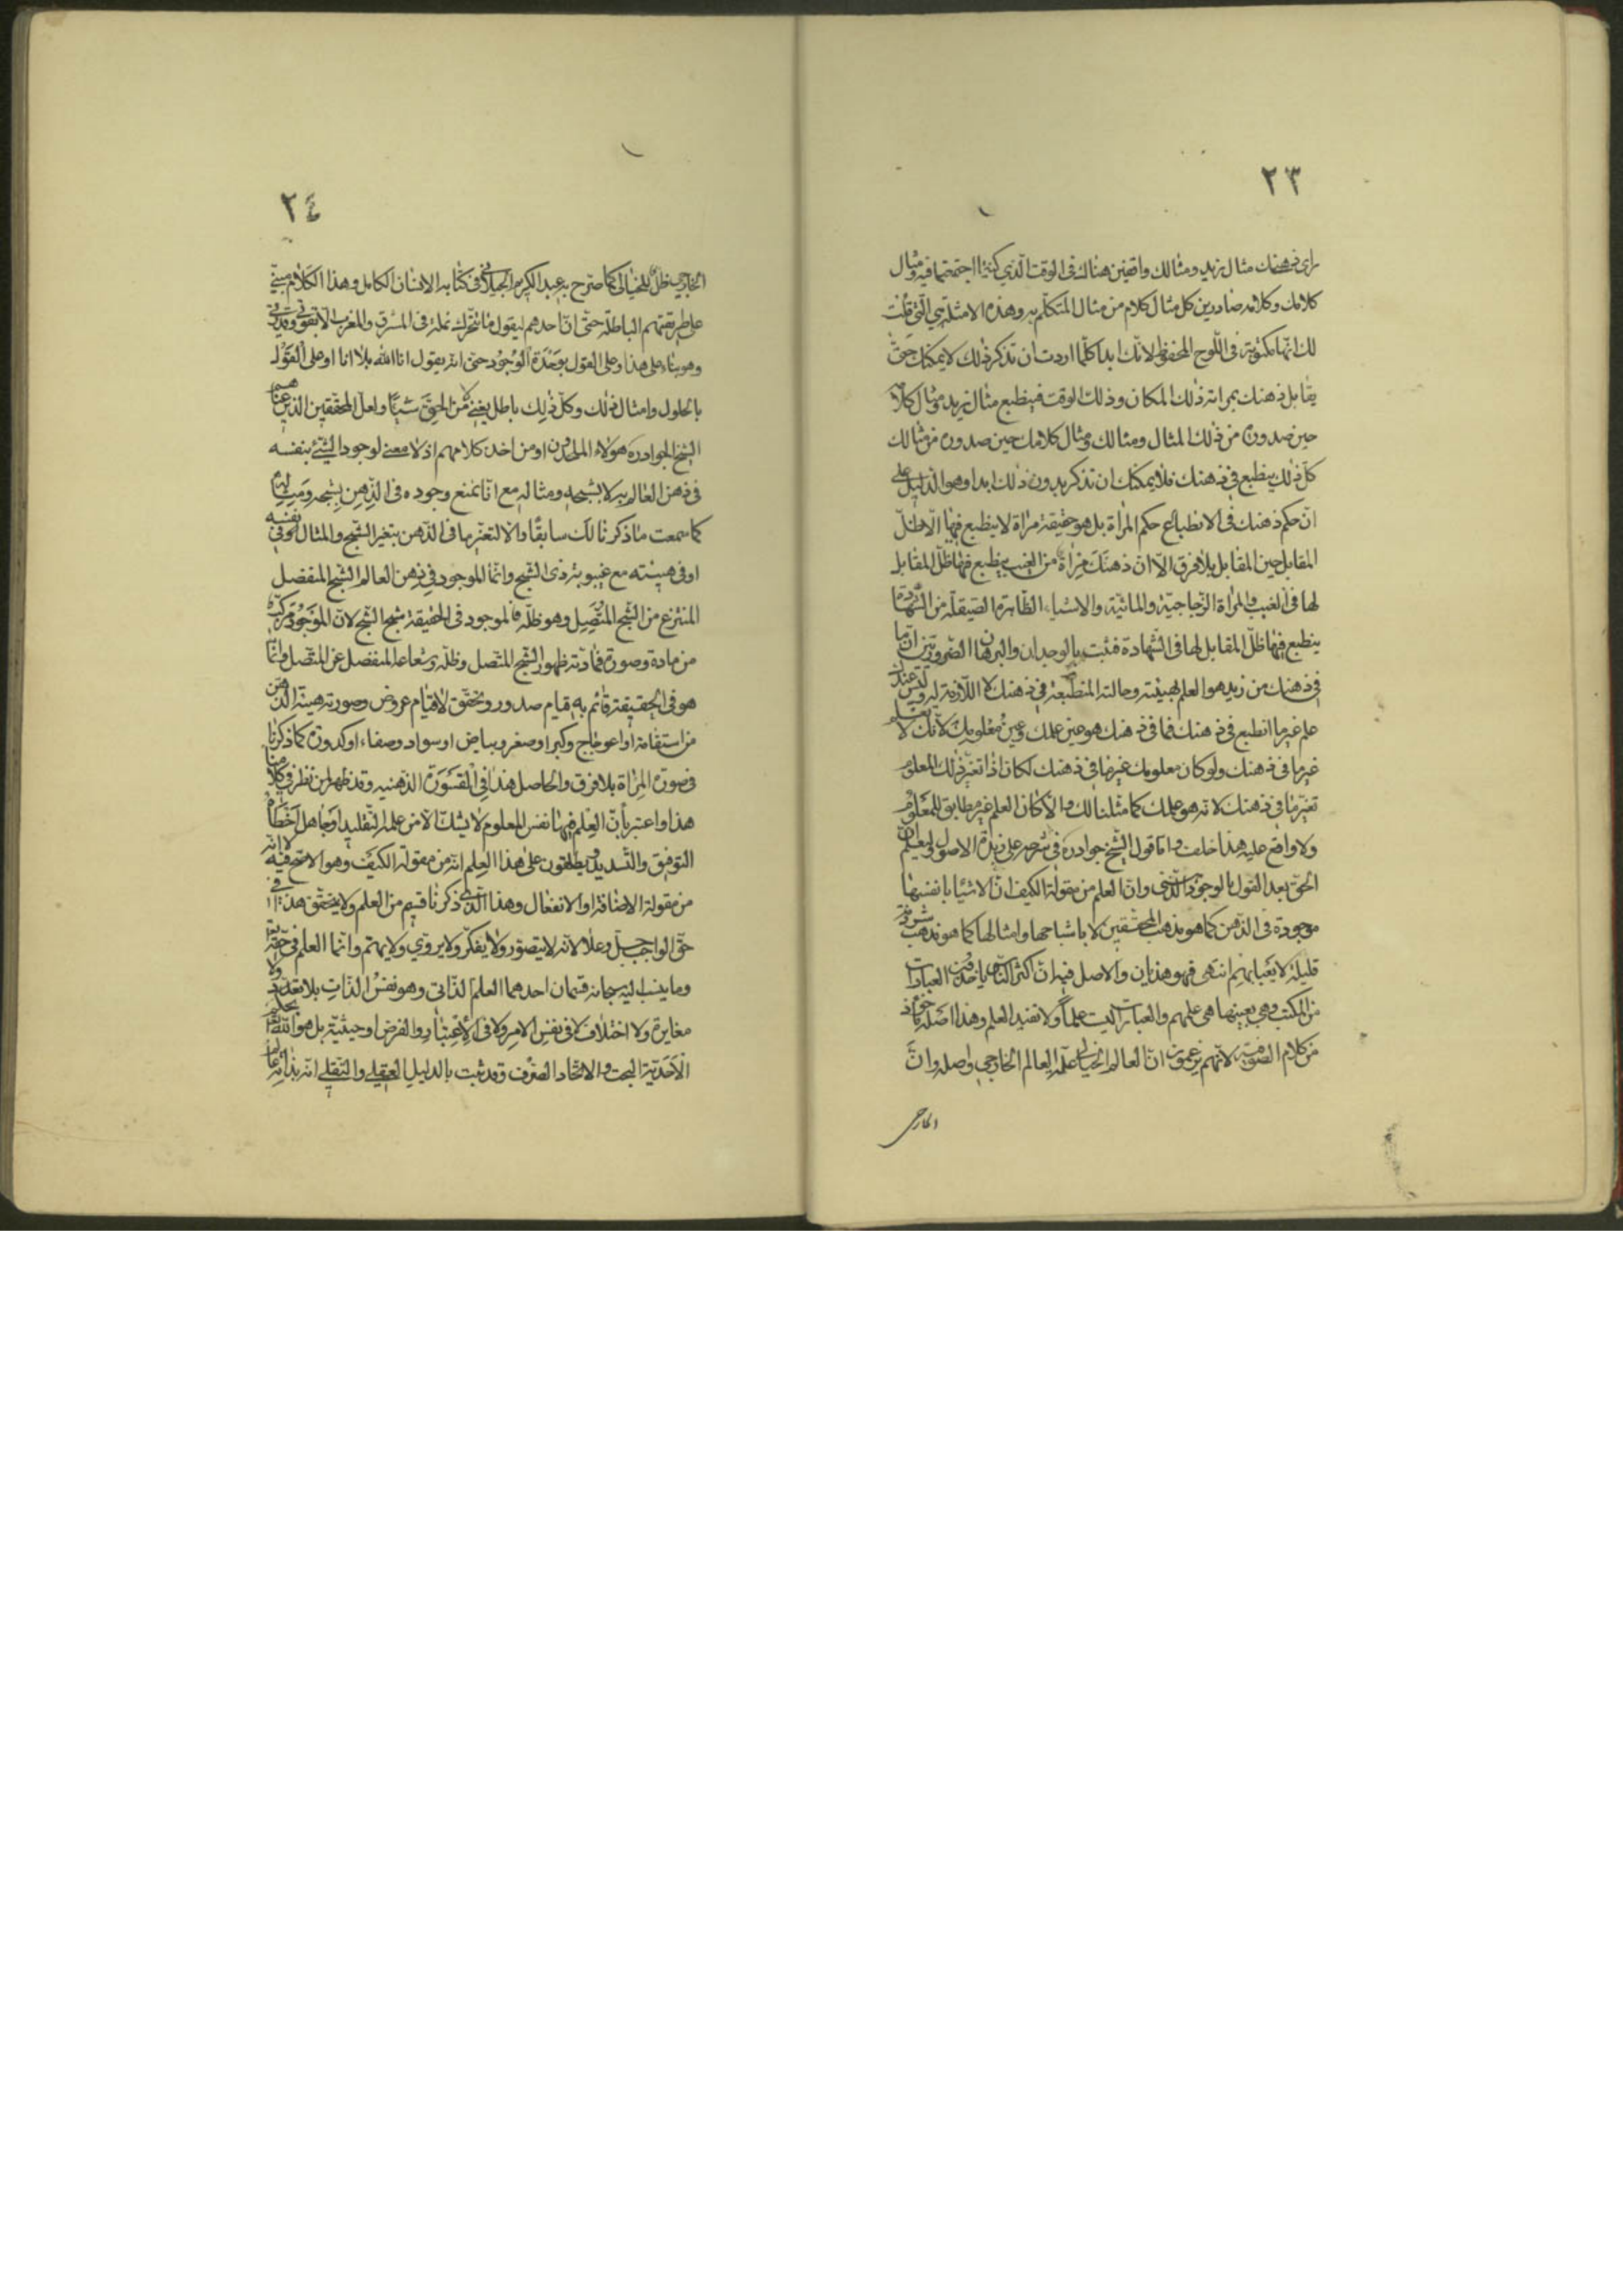 ٢٣
راى ذهنك مثال زيد ومثالك واقفين هنالك فى الوقت الّذي كنتما اجتمعتما فيه ومثال
كلامك وكلامه صادرين كل مثال كلام من مثال المتكلّم به وهذه الامثلة هي الّتي قلت
لك انّها مكتوبة فى اللّوح المحفوظ لانّك ابدا كلّما اردت ان تذكر ذلك لا يمكنك حتّى
يقابل ذهنك بمراته ذلك المكان وذلك الوقت فينطبع مثال زيد ومثال كلامه
حين صدوره من ذلك المثال ومثالك ومثال كلامك حين صدوره من مثالك
كلّ ذلك ينطبع في ذهنك فلا يمكنك ان تذكر بدون ذلك ابدا وهو الدّليل على
انّ حكم ذهنك فى الانطباع حكم المراة بل هو حقيقة مراة لا ينطبع فيها الّا ظلّ
المقابل حين المقابلة بلا فرق الّا انّ ذهنك مراة من الغيب ينطبع فيها ظلّ المقابل
لها فى الغيب والمراة الزّجاجيّة والمائيّة والاشياء الظّاهرة الصّيقلة من الشّهادة
ينطبع فيها ظلّ المقابل لها فى الشّهادة فثبت بالوجدان والبرهان الضّروريّين انّ ما
في ذهنك من زيد هو العلم بهيئته وحالته المنطبعة في ذهنك اللّازمة له وليس عندك
علم غير ما انطبع فى ذهنك فما فى ذهنك هو عين علمك وعين معلومك لانّك لا تعلم
غير ما فى ذهنك ولو كان معلومك غير ما فى ذهنك لكان اذا تغيّر ذلك المعلوم
تغيّر ما في ذهنك لانّه هو علمك كما مثّلنا لك والّا كان العلم غير مطابق للمعلوم
ولا واقع عليه هذا خلف وامّا قول الشّيخ جواد ره في شرحه على زبدة الاصول
الحقّ بعد القول بالوجود الذّهني وانّ العلم من مقولة الكيف انّ الاشياء بانفسها
موجودة فى الذّهن كما هو مذهب المحقّقين لا باشباحها وامثالها كما هو مذهب شرذمة
قليلة لا يعبأ بهم انتهى فهو هذيان والاصل فيه انّ اكثر النّاس ياخذون العبارات
من الكتب وهي بعينها هي علمهم والعبارات ليست علماً ولا تفيد العلم وهذا اصله ماخوذ
من كلام الصّوفيّة لانّهم يزعمون انّ العالم الخيالي علّة العالم الخارجي واصله وانّ
الخارجى
٢٤
الخارجي ظلّ للخيالى كما صرّح به عبد الكريم الجيلانى في كتابه الانسان الكامل وهذا الكلام مبنيّ
على طريقتهم الباطلة حتّى انّ احدهم ليقول ما تتحرّك نملة فى المشرق والمغرب الّا بقوّتي وقدرتي
وهو بناء على هذا وعلى القول بوحدة الوجود حتّى انّه يقول انا اللّه بلا انا او على القول
بالحلول وامثال ذلك وكلّ ذلك باطل لا يغنى من الحقّ شيئا ولعلّ المحقّقين الذين عناهم
الشّيخ الجواد ره هؤلاء الملحدون او من اخذ كلامهم اذ لا معنى لوجود الشّيء بنفسه
فى ذهن العالم به لا بشبحه ومثاله مع انّا نمنع وجوده فى الذّهن بشبحه ومثاله
كما سمعت ما ذكرنا لك سابقًا والّا لتغيّر ما فى الذّهن بتغيّر الشّبح والمثال فى نفسه
او فى هيئته مع غيبوبة ذى الشّبح وانّما الموجود في ذهن العالم الشّبح المنفصل
المنتزع من الشّبح المتّصل وهو ظلّه فالموجود فى الحقيقة شبح الشّبح لانّ الموجود مركّب
من مادة وصورة فمادّته ظهور الشّبح المتّصل وظلّه وشعاعه المنفصل عن المتّصل وانّما
هو فى الحقيقة قائم به قيام صدور وتحقّق لا قيام عروض وصورته هيئة الذّهن
من استقامة او اعوجاج وكبر او صغر وبياض او سواد وصفاء او كدورة كما ذكرنا
فى صورة المراة بلا فرق والحاصل هذا فى الذهنيه وقد ظهر لمن نظر فى كلامنا
هذا واعتبر بأنّ العلم فيها نفس المعلوم لا يشكّ الّا من علمه التّقليد او جاهل اخطأه
التوفيق والتّسديد ويطلقون على هذا العلم انّه من مقولة الكيف وهو الاصحّ فيه لا انّه
من مقولة الاضافة او الانفعال وهذا الّذي ذكرنا قسم من العلم ولا يتحقّق هذا فى
حقّ الواجب جلّ وعلا لانّه لا يتصوّر ولا يفكّر ولا يروّي ولا يهتمّ وانّما العلم فى حقّه
وما ينسب اليه سبحانه قسمان احدهما العلم الذّاتى وهو نفس الذّات بلا تعدّد ولا
مغايرة ولا اختلاف لا فى نفس الامر ولا فى الاعتبار والفرض او حيثيّة بل هو اللّه
الأحديّة البحت والاتّحاد الصّرف وقد ثبت بالدليل العقلي والنّقلي انّه بذاته عالم